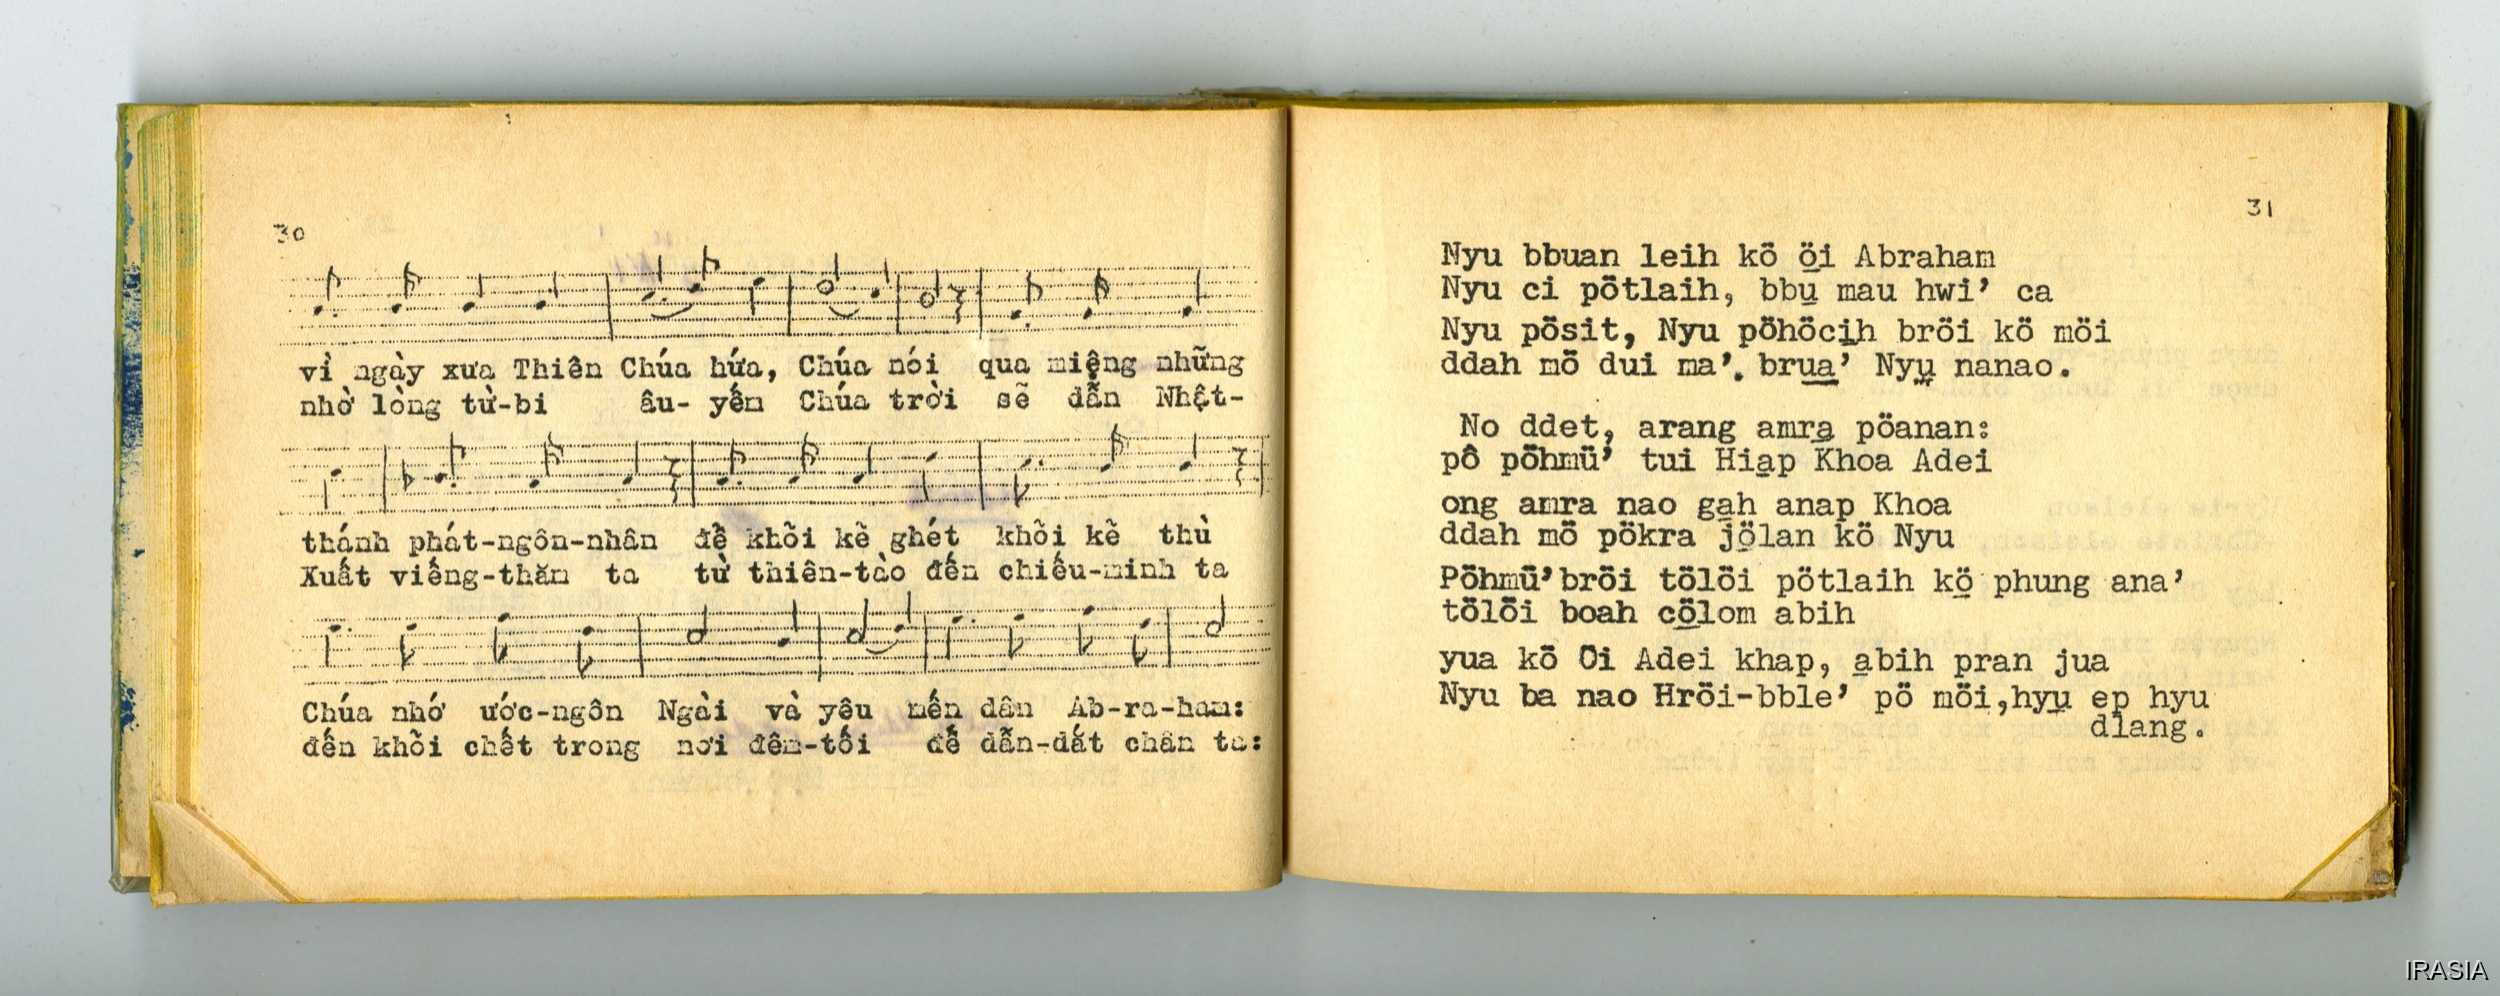 30
vì ngày xưa Thiên Chúa hứa, Chúa nói qua miệng những
nhờ lòng từ-bi âu- yếm Chúa trời sẽ dẫn Nhật-
thánh phát-ngôn-nhân để khỏi kẻ ghét khỏi kẻ thù
Xuất viếng-thăm ta từ thiên-tào đến chiếu-minh ta
Chúa nhớ ước-ngôn Ngài và yêu mến dân Ab-ra-ham:
đến khỏi chết trong nơi đêm-tối để dẫn-dắt chân ta:
31
Nyu bbuan leih kö ö̲i Abraham
Nyu ci pötlaih, bbu̲ mau hwi’ ca
Nyu pösit, Nyu pöhöci̲h bröi kö möi
ddah mö dui ma’. bru̲a̲’ Nyu̲ nanao.
No ddet, arang amra̲ pöanan:
pô pöhmü’ tui Hia̲p Khoa Adei
ong amra nao ga̲h anap Khoa
ddah mö pökra jö̲lan kö Nyu
Pöhmü’bröi tölöi pötlaih kö̲ phung ana’
tölöi boah cö̲lom abih
yua kö Oi Adei khap, a̲bih pran jua
Nyu ba nao Hröi-bble’ pö möi,hyu̲ ep hyu
dlang.
IRASIA